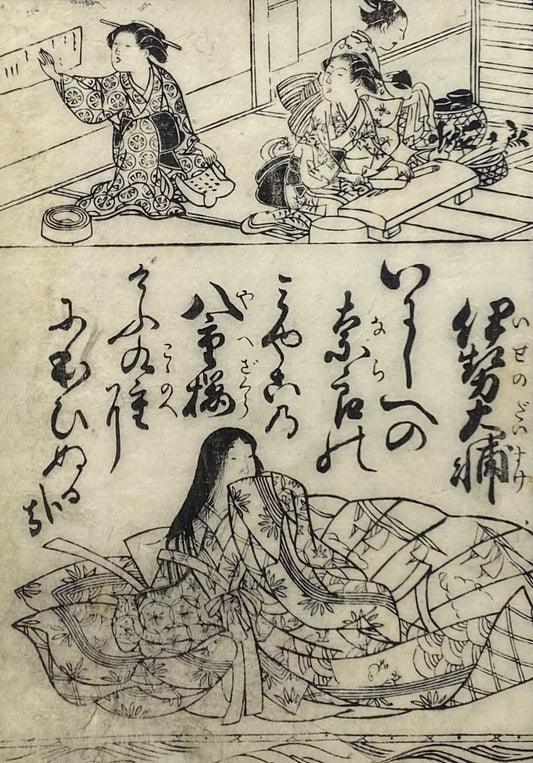 伊勢大輔
いせのたいすけ
いにしへの
奈良の
なら
みやこの
八重桜
やへざくら
けふ九重に
こゝのへ
にほひぬる
哉